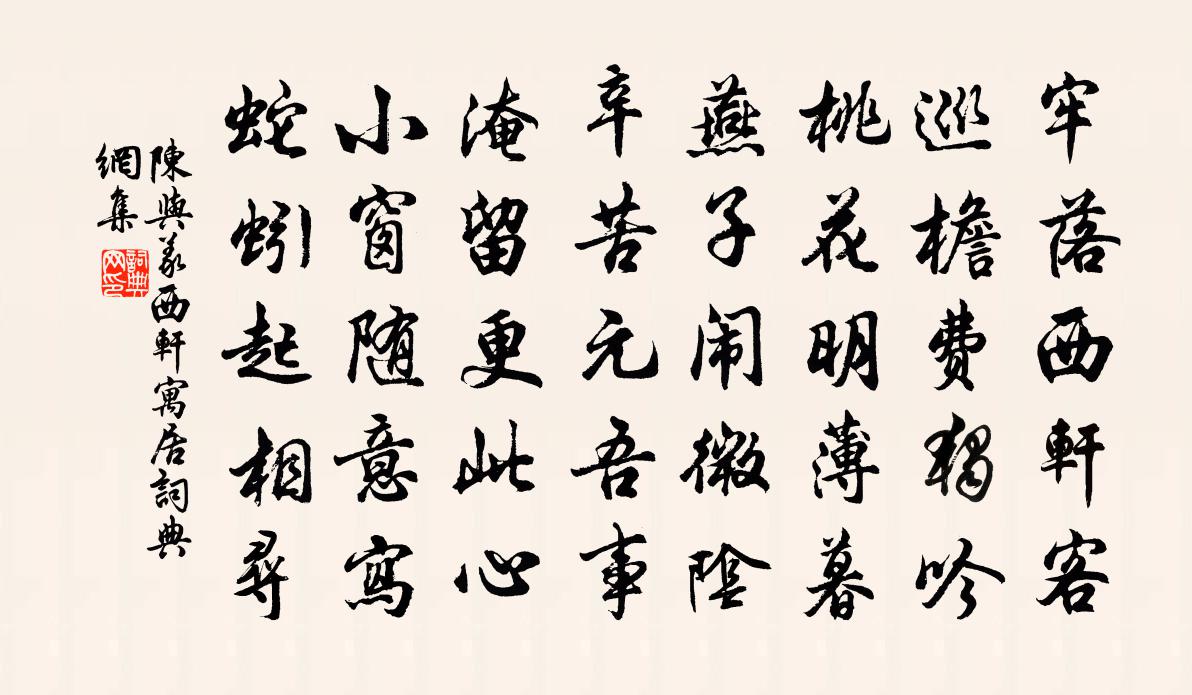 牢落西軒客
巡檐費獨吟
桃花明薄暮
燕子闹微陰
辛苦元吾事
淹留更此心
小窗随意寫
蛇蚓起相尋
陳與義西軒寓居詞典
網集
詞典
网印